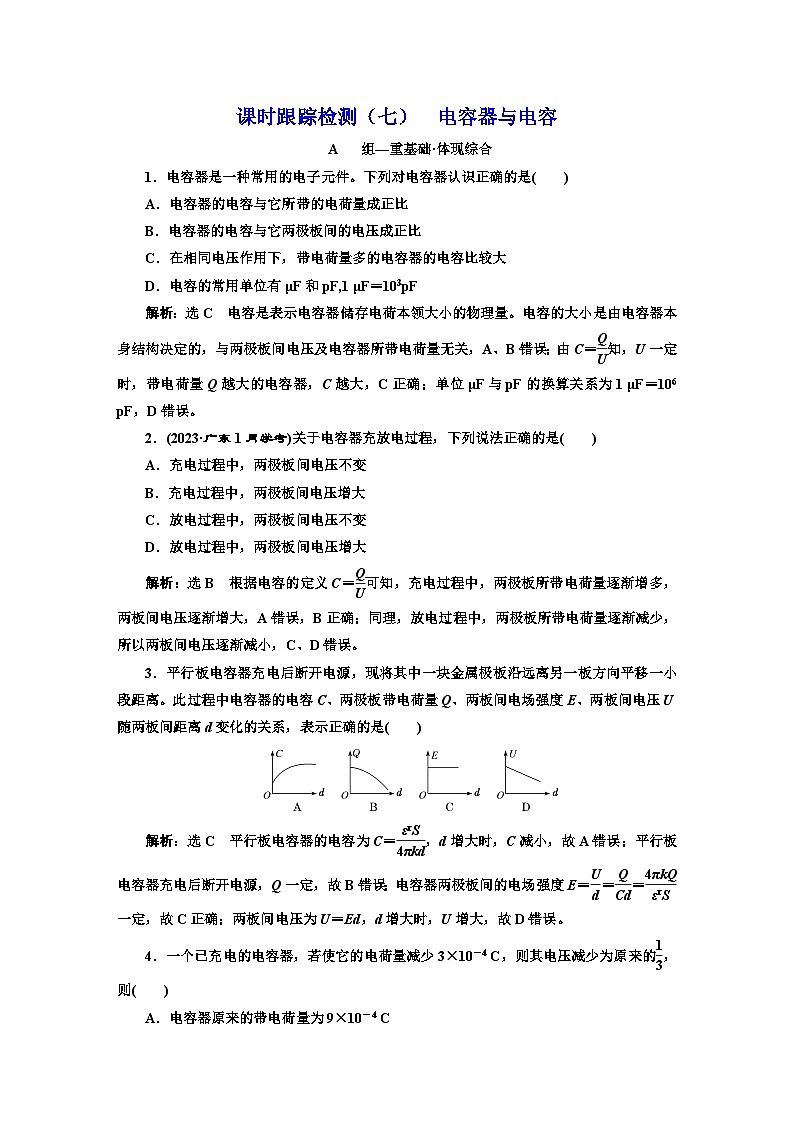 课时跟踪检测（七）　电容器与电容
A　组—重基础·体现综合
1．电容器是一种常用的电子元件。下列对电容器认识正确的是(　　)
A．电容器的电容与它所带的电荷量成正比
B．电容器的电容与它两极板间的电压成正比
C．在相同电压作用下，带电荷量多的电容器的电容比较大
D．电容的常用单位有 μF 和 pF,1 μF＝10³pF
解析：选 C　电容是表示电容器储存电荷本领大小的物理量。电容的大小是由电容器本
身结构决定的，与两极板间电压及电容器所带电荷量无关，A、B 错误；由 C＝Q/U知，U 一定
时，带电荷量 Q 越大的电容器，C 越大，C 正确；单位 μF 与 pF 的换算关系为 1 μF＝10⁶
pF，D 错误。
2．(2023·广东 1 月学考)关于电容器充放电过程，下列说法正确的是(　　)
A．充电过程中，两极板间电压不变
B．充电过程中，两极板间电压增大
C．放电过程中，两极板间电压不变
D．放电过程中，两极板间电压增大
解析：选 B　根据电容的定义 C＝Q/U可知，充电过程中，两极板所带电荷量逐渐增多，
两板间电压逐渐增大，A 错误，B 正确；同理，放电过程中，两极板所带电荷量逐渐减少，
所以两板间电压逐渐减小，C、D 错误。
3．平行板电容器充电后断开电源，现将其中一块金属极板沿远离另一板方向平移一小
段距离。此过程中电容器的电容 C、两极板带电荷量 Q、两板间电场强度 E、两板间电压 U
随两板间距离 d 变化的关系，表示正确的是(　　)
C Q E U
O d O d O d O d
A B C D
解析：选 C　平行板电容器的电容为 C＝εrS/4πkd，d 增大时，C 减小，故 A 错误；平行板
电容器充电后断开电源，Q 一定，故 B 错误；电容器两极板间的电场强度 E＝U/d＝Q/Cd＝4πkQ/εrS
一定，故 C 正确；两板间电压为 U＝Ed，d 增大时，U 增大，故 D 错误。
4．一个已充电的电容器，若使它的电荷量减少 3×10⁻⁴ C，则其电压减少为原来的1/3，
则(　　)
A．电容器原来的带电荷量为 9×10⁻⁴ C